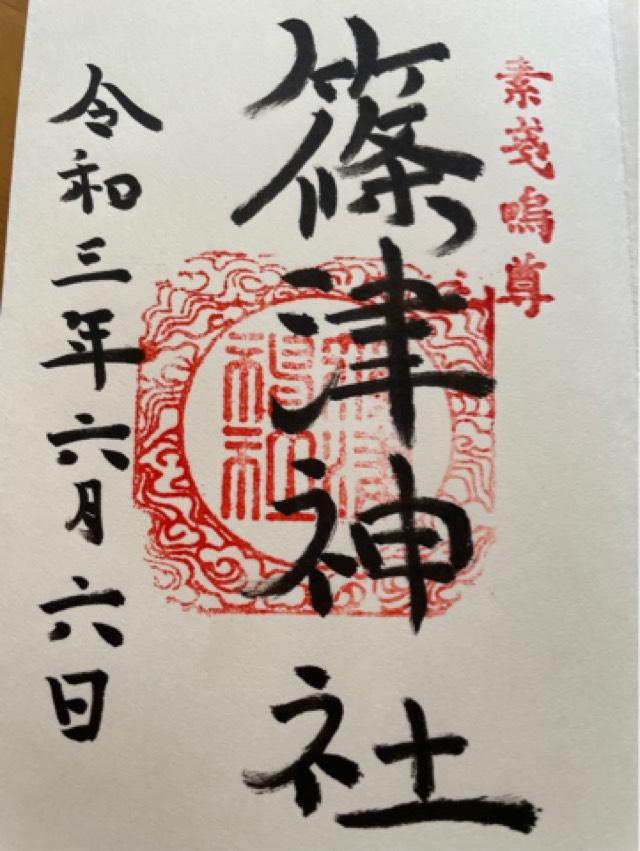 素戔嗚尊
篠津神社
篠津
神社
令和三年六月六日